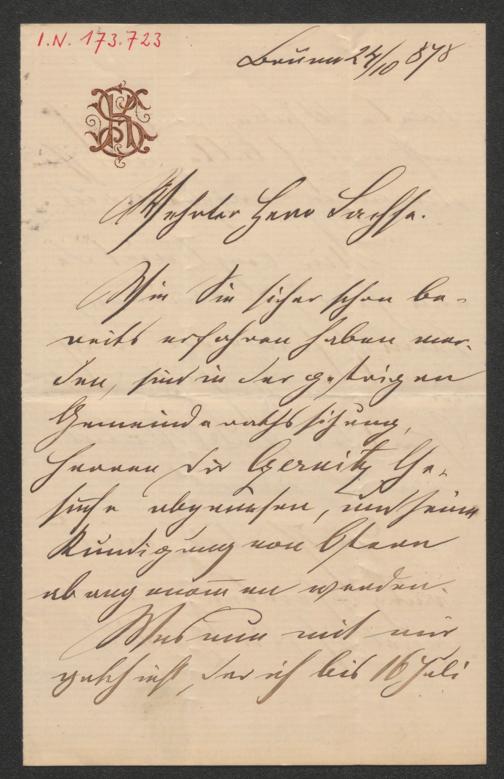 I.N. 173.723
Brünn 24/10 878
Wehrter Herr Sachse.
Wie Sie sicher schon be-
reits erfahren haben wer-
den, sind in der gestrigen
Gemeinderathssitzung,
Herren Dir Czernitz Ge-
suche abgewiesen, und seine
Kündigung von Ostern
ab angenommen worden.
Was nun mit mir
geschieht, der ich bis 16 Juli